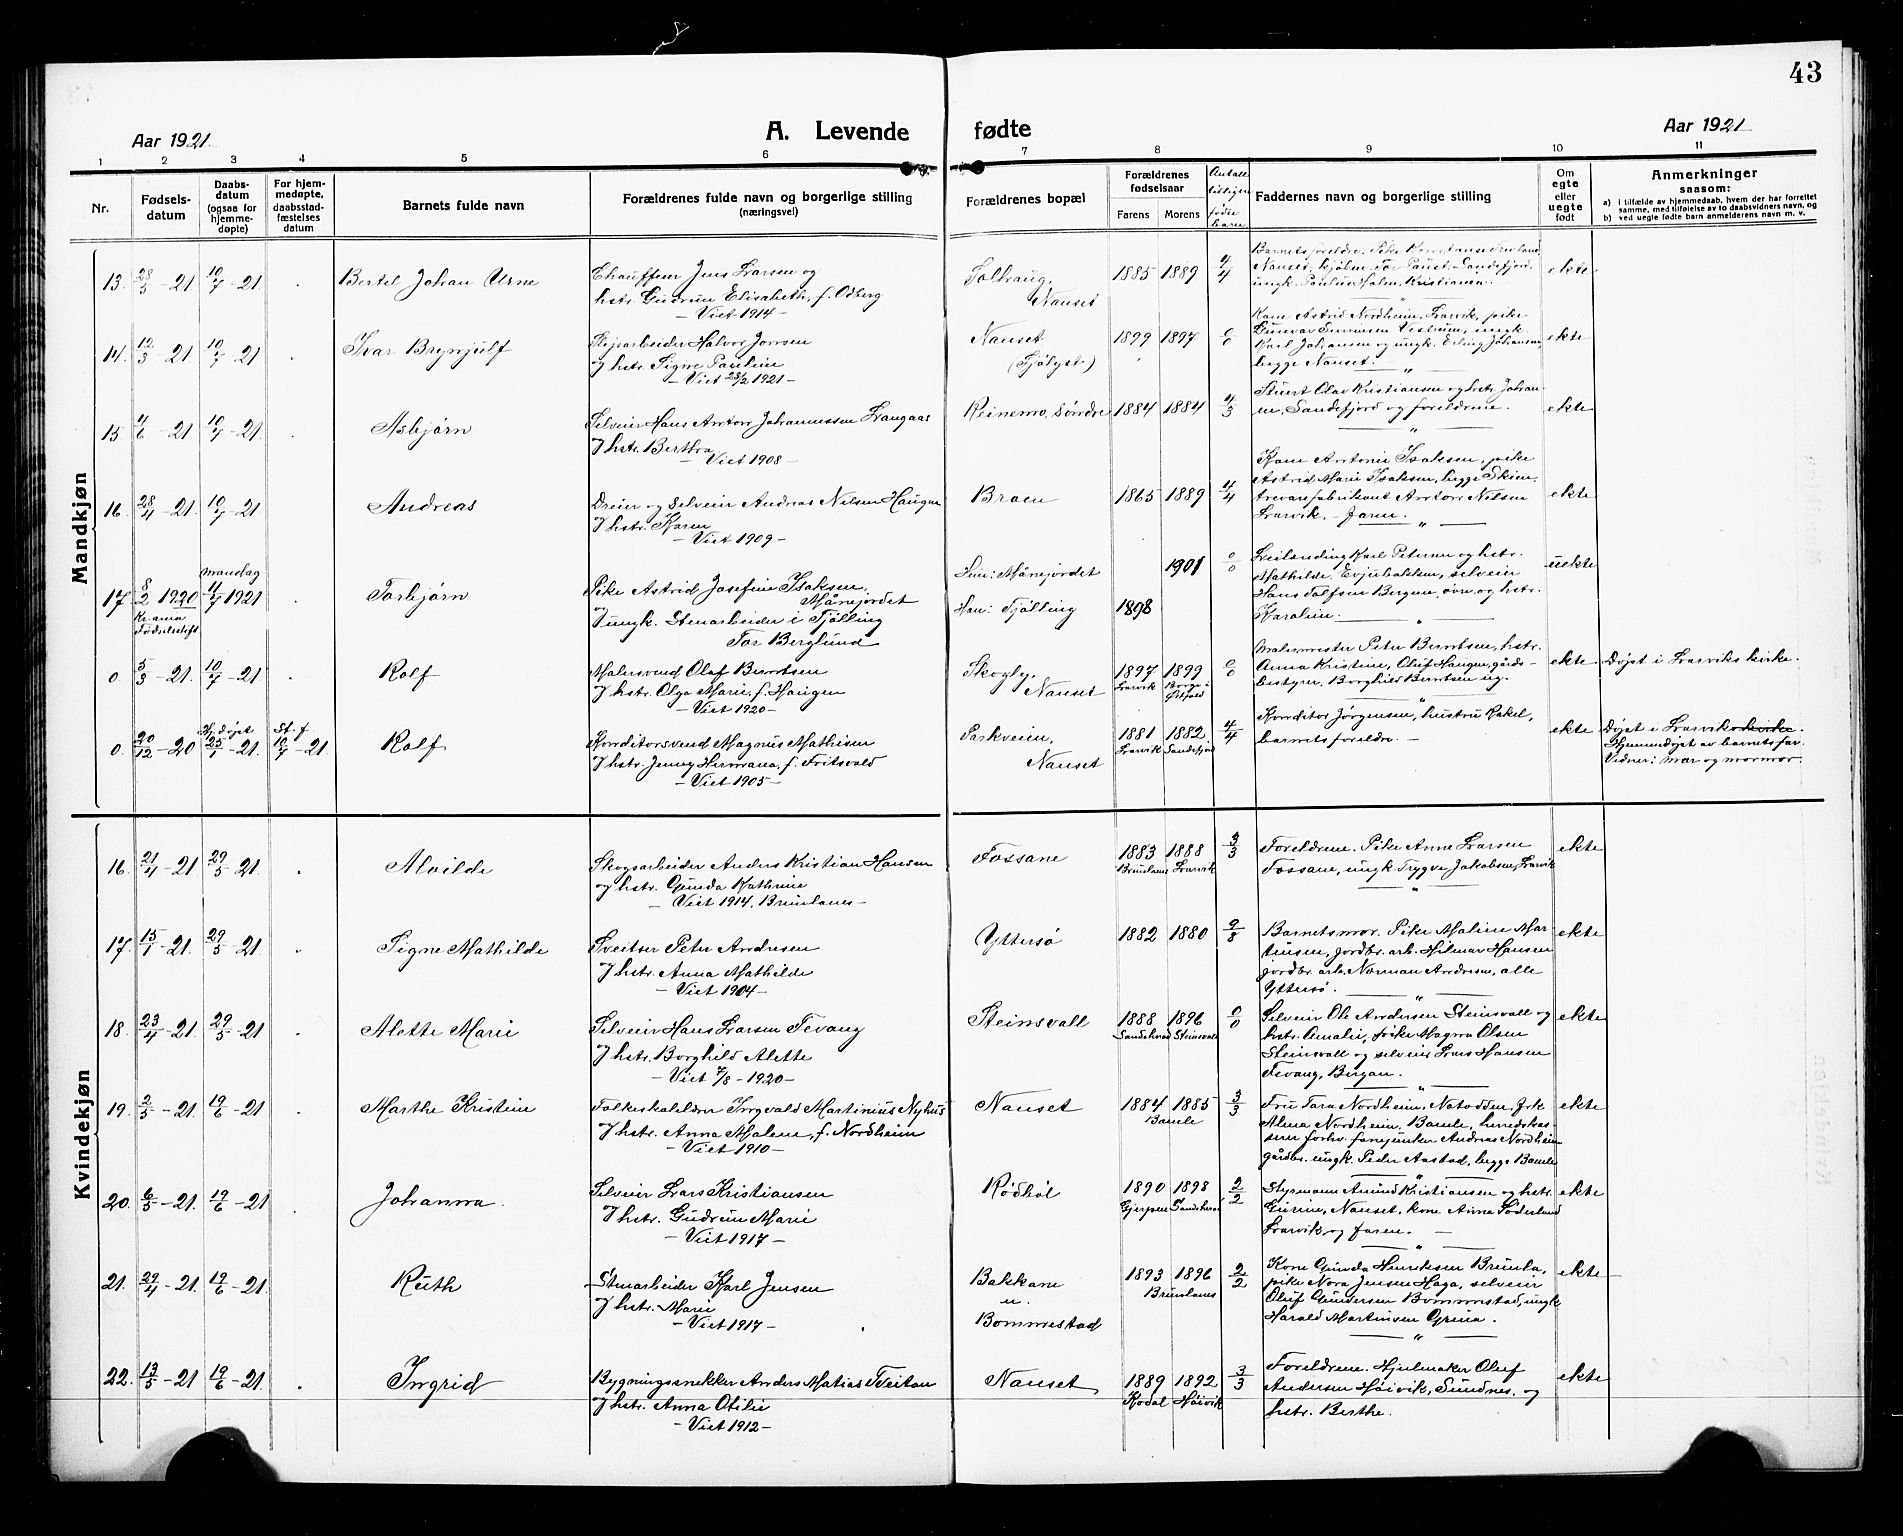 43
Aar 1921. A. Levende fødte Aar 1921
1 2 3 4 5 6 7 8 9 10 11
Nr.
Fødsels-
datum
Daabs-
datum
(ogsaa for
hjemme-
døpte)
For hjem-
medøpte,
daabsstad-
fæstelses
datum
Barnets fulde navn
Forældrenes fulde navn og borgerlige stilling
(næringsvei)
Forældrenes bopæl
Forældrenes
fødselsaar
Farens Morens
Antall
tidligere
fødte
barn
Faddernes navn og borgerlige stilling
Om
egte
eller
uegte
født
Anmerkninger
saasom:
a) i tilfælde av hjemmedaab, hvem der har forrettet
samme, med tilføielse av to daabsvidners navn, og
b) ved uegte fødte barn anmelderens navn m. v.
Mandkjøn
13. 28/3-21 10/7-21 Bertel Johan Urne
Chauffeur Jens Larsen og
hstr. Gudrun Elisabeth, f. Odberg
- Viet 1914 -
Solhaug,
Nanset
1885 1889 4/4
Barnets foreldre. Pike Konstanse
Nanset, Sandefjord,
ungk. Paulus Holm, Kristiania. -
ekte
14. 12/3-21 10/7-21 Ivar Brynjulf
Skjparbeider Halvor Jonsen
og hstr. Signe Pauline
- Viet 23/2 1921 -
Nanset
(Fjølyst)
1899 1897 0/0
Kone Astrid Nordheim, Larvik, pike
Gunvor Simonsen Vestrum, ungk.
Karl Johansen og ungk. Erling Johansen,
begge Nanset. -
ekte
15 4/6-21 10/7-21 Asbjørn
Selveier Hans Anton Johannessen Langaas
og hstr. Berthea
- Viet 1908 -
Reinemo, søndre
1884 1884 4/3
Stuert Olav Kristiansen og hstr. Johan-
ne, Sandefjord og foreldrene.
ekte
16. 28/4-21. 10/7-21 Andreas
Dreier og Selveier Andreas Nilsen Haugen
og hstr. Karen
- Viet 1909 -
Braen
1865 1889 4/4
Kone Antonie Isaksen, pike
Astrid Marie Isaksen, begge Skien,
trevarefabrikant Anton Nilsen
Larvik. - Faren.
ekte
17 8/2 1920
Kr.ania
Fødselsstift
mandag
11/7 1921 Torbjørn
Pike Astrid Josefine Isaksen,
Månejordet
og ungk. Stenarbeider i Tjølling
Tor Berglund
Hun: Månejordet
Han: Tjølling
1898 1901 0/0
Leilending Karl Petersen og hstr.
Mathilde, Evjubakken, selveier
Hans Tolfsen Bergene, øvre og hstr.
Karoline.
uekte
0 5/3-21. 10/7-21 Rolf
Malersvend Olaf Berntsen
og hstr. Olga Marie, f. Haugen
- Viet 1920 -
Skogly,
Nanset
1897 1899 0/0
Larvik Borge i
Østfold
Malermester Peter Berntsen, hstr.
Anna Kristine, Oluf Haugen, gårds-
bestyrer, Borghild Berntsen ug.
ekte Døpt i Larviks kirke.
0. 20/12-20 Hj.døpt
25/1-21. St.f
10/7-21 Rolf
Konditorsvend Magnus Mathisen
og hstr. Jenny Hermana, f. Fritsvold
- Viet 1905 -
Parkveien,
Nanset
1881 1882 4/4
Larvik Sandefjord
Konditor Jørgensen, hustru Rakel,
barnets foreldre. -
ekte Døpt i Larviks kirke
Hjemmedøpt av barnets far.
Vidner: mor og mormor.
Kvindekjøn
16. 21/4-21 29/5-21 Alvilde
Skogsarbeider Anders Kristian Hansen
og hstr. Gunda Kathrine
- Viet 1914, Brunlanes -
Fossane
1883 1888 3/3
Brunlanes Larvik
Foreldrene. Pike Anne Larsen
Fossane, ungk. Trygve Jakobsen, Larvik
ekte
17. 15/1-21. 29/5-21 Signe Mathilde
Sveitser Peter Andresen
og hstr. Anna Mathilde
- Viet 1904 -
Yttersø
1882 1880 9/8
Barnets mor. Pike Maline Mar-
tinsen, jordbr. arb. Hilmar Hansen
jordbr. arb. Norman Andresen, alle
Yttersø.
ekte
18. 23/4-21 29/5-21 Alette Marie
Selveier Hans Larsen Fevang
og hstr. Borghild Alette
- Viet 7/8-1920 -
Steinsvall
1888 1896 0/0
Sandeherad Steinsvall
Selveier Ole Andersen Steinsvall og
hstr. Amalie, pike Magna Olsen
Steinsvall og selveier Lars Hansen
Fevang, Bergan.
ekte
19. 2/5-21. 19/6-21 Marthe Kristine
Folkeskolelærer Ingvald Martinius Nyhus
og hstr. Anna Malene, f. Nordheim
- Viet 1910 -
Nanset
1884 1885 3/3
Bamle
Fru Tora Nordheim, Notodden, frk.
Alma Nordheim, Bamle, herredskas-
serer forhv. fanejunker Andreas Nordheim
gårdbr. ungk. Peder Aastad, begge Bamle
ekte
20. 6/5-21. 19/6-21 Johanna.
Selveier Lars Kristiansen
og hstr. Gudrun Marie
- Viet 1917 -
Rødbøl
1890 1898 2/2
Gjerpen Sandeherad
Styrmann Amund Kristiansen og hstr.
Gurine, Nanset, kone Anna Söderlund
Larvik og faren. -
ekte
21. 29/4-21. 19/6-21 Ruth
Stenarbeider Karl Jensen
og hstr. Marie
- Viet 1917 -
Bakkane
u.
Bommestad
1893 1896 2/2
Brunlanes
Kone Gunda Henriksen Brunla,
pike Nora Jensen Haga, selveier
Oluf Gundersen Bommestad, ungk.
Harald Martinsen Grina.
ekte
22. 13/5-21 19/6-21. Ingrid
Bygningssnekker Anders Matias Tveitan
og hstr. Anna Otilie
- Viet 1912 -
Nanset
1889 1892 3/3
Kodal Høivik
Foreldrene. Hjulmaker Oluf
Andersen Høivik, Sundnes, og
hstr. Berthe.
ekte